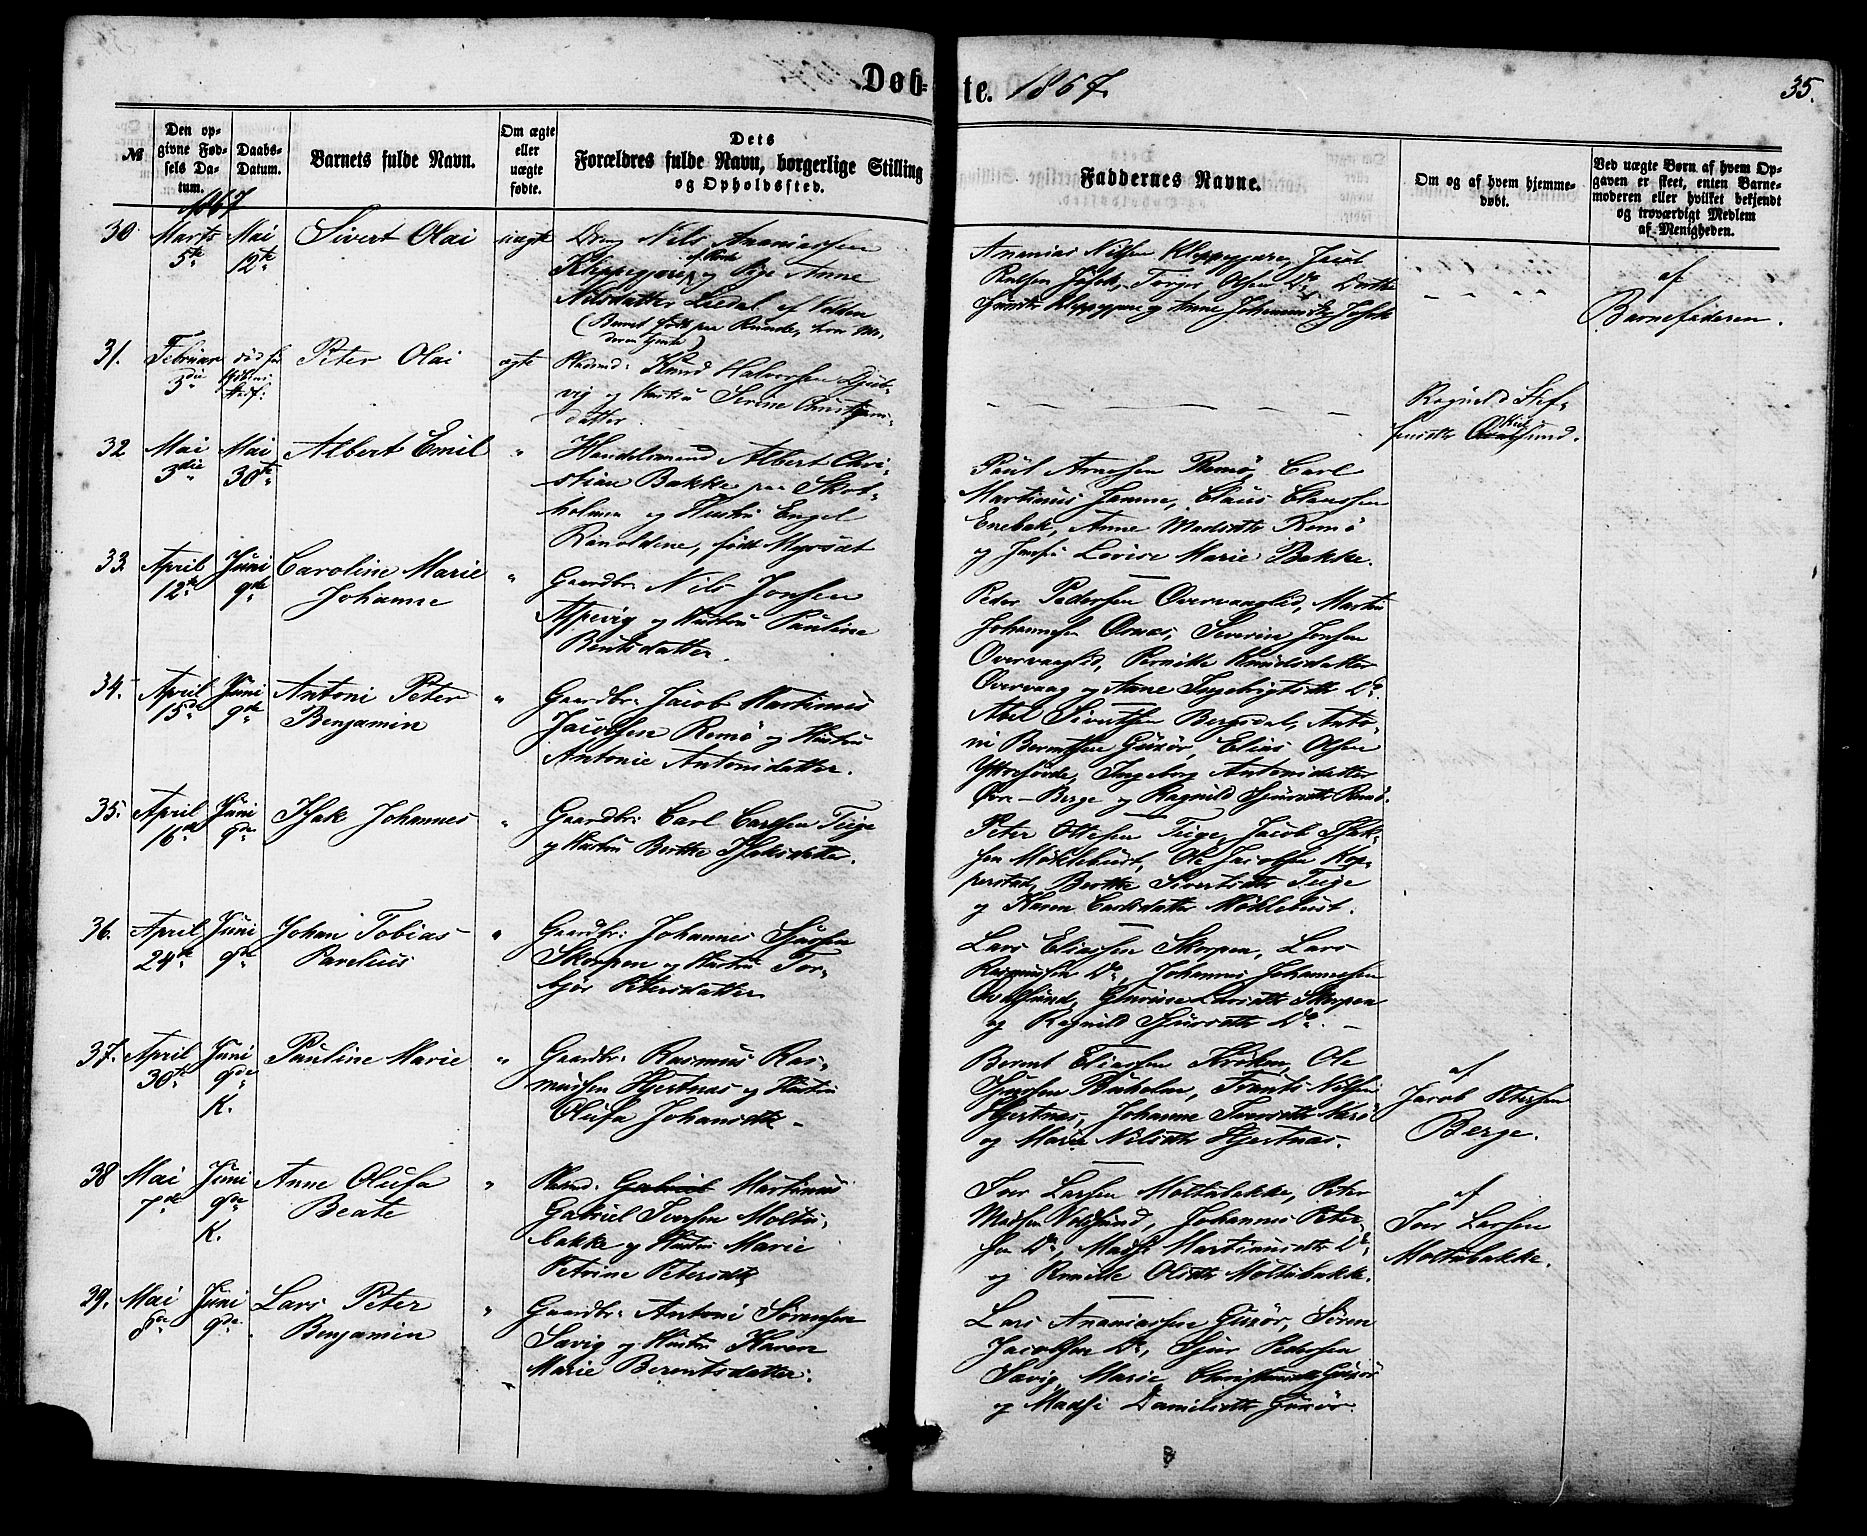 Døb=te. 1867.
35.
№
Den opgivne Fødsels Datum.
Daabs-Datum.
Barnets fulde Navn.
Om ægte eller uægte fødte.
Dets Forældres fulde Navn, borgerlige Stilling og Opholdssted.
Faddernes Navne.
Om og af hvem hjemmedøbt.
Ved uægte Børn af hvem Opgaven er skeet, enten Barnemoderen eller hvilket bekjendt og troværdigt Medlem af Menigheden.
1867
30 Marts 5te Mai 12te Sivert Olai uægte
Nils Ananiassen
og Pige Anne
Nilsdatter Leedal af Volden
(Barnet født paa Runde, hvor Moderen tjente)
Ananias Nilsen Kleppegjære, Jacob
Torger Olsen Do, Dorthe
af
Barnefaderen.
31. Februar 3die død før Peter Olai ægte
Knud Halvorsen Djubvig
og Hustru Serine Christians-
datter.
Ragnild Stef-
fensdtr sund.
32 Mai 3die Mai 30te Albert Emil "
Handelsmand Albert Chri-
stian Bakke paa Skot-
holmen og Hustru Engel
Rinoldine, født Myrsæt
Paul Arnesen Remø, Carl
Martinus Janne, Claus Claussen
Enebak, Anne Madsdtr Remø
og Jmfr Lovise Marie Bakke.
33 April 12te Juni 9de Caroline Marie "
Johanne
Gaardbr: Nils Jonsen
Aspevig og Hustru Pauline
Bentsdatter.
Peder Pedersen Overvaaglid, Martin
Johannesen Osnæs, Severin Jonsen
Overvaaglid, Pernille Knudsdatter
Overvaag og Anne Ingebrigtsdtr Do.
34. April 15de Juni 9de Antoni Peter "
Benjamin
Gaardbr: Jacob Martinus
Jacobsen Remø og Hustru
Antonie Antonsdatter.
Abel Sivertsen Bergsdal, Anto-
ni Berntsen Gurør, Elias Olsen
Yttresørde, Ingeborg Antonidatter
Øvre-Berge og Ragnild Sjursdtr Remø.
35. April 16de Juni 9de Isak Johannes "
Gaardbr: Carl Carlsen Teige
og Hustru Berthe Isaksdatter.
Peter Ottesen Teige, Jacob Isak-
sen Møklebust, Ole Jacobsen Kop-
perstad, Berthe Sivertsdtr Teige
og Karen Carlsdatter Møklebust.
36. April 24de Juni 9de Johan Tobias "
Parelius
Gaardbr: Johannes Sjursen
Skorpen og Hustru Tor-
bjør Petersdatter
Lars Eliassen Skorpen, Lars
Rasmussen Do, Johannes Johannessen
Voldsund, Gurine Larsdtr Skorpen
og Ragnild Sjursdtr Do. -
37. April 30te Juni 9de K. Pauline Marie "
Gaardbr: Rasmus Ras-
mussen Hjertnes og Hustru
Olufa Johansdtr -
Bernt Eliassen Kroken, Ole
Frants Nilsen
Hjertnæs, Johanne
og Marie Nilsdtr Hjertnæs.
af
Jacob Petersen
Berge.
38 Mai 7de Juni 9de K. Anne Olufa "
Beate
Gabriel Martinus
Gabriel Iversen Moltu-
bakke og Hustru Marie
Petrine Petersdtr
Iver Larsen Moltubakke, Peter
Madsen Voldsund, Johannes Peter-
sen Do, Madsi Martinusdtr Do.
og Pernille Olsdtr Moltubakke.
af
Iver Larsen
Moltubakke.
39. Mai 8de Juni 9de Lars Peter "
Benjamin
Gaardbr: Antoni Sørensen
Savig og Hustru Karen
Marie Berentsdatter.
Lars Ananiassen Gurør, Søren
Jacobsen Do, Sjur Pedersen
Savig, Marie Gurør
og Madsi Danielsdtr Gurør.